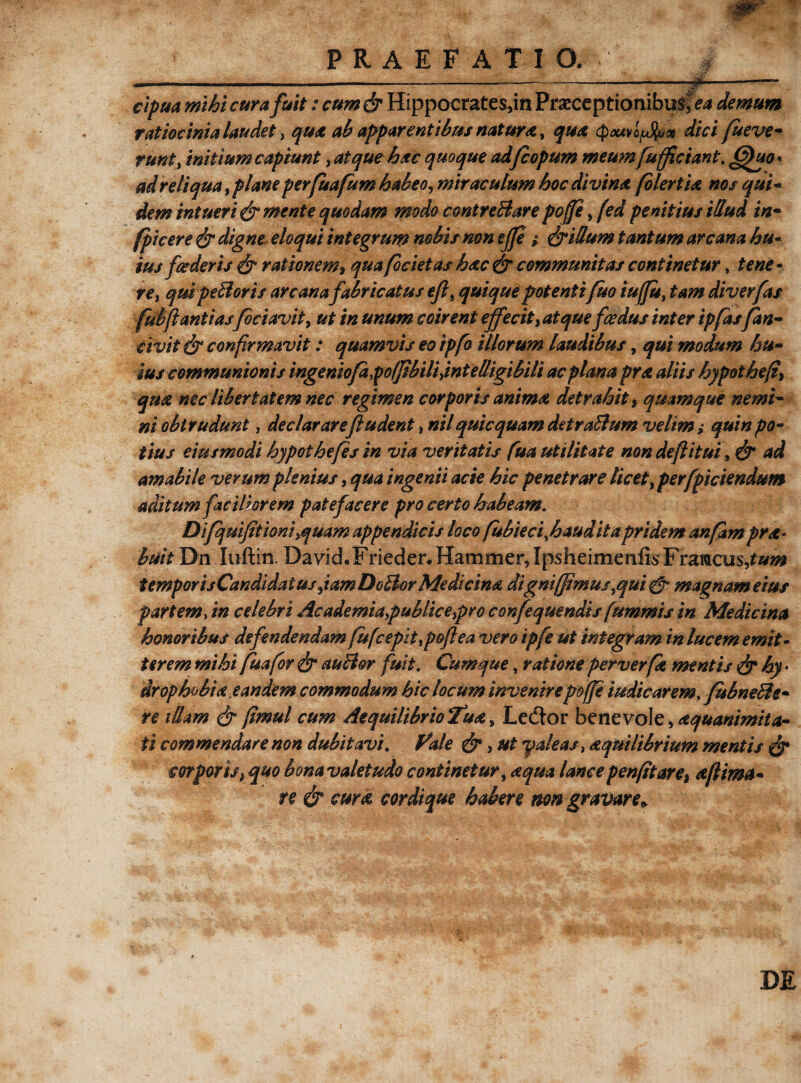 PRAEFATIO.
cipua mihi cura fuit: cum & Hippocrates, in Præceptionibus, ea demum
ratiocinia laudet, quæ ab apparentibus naturæ, quæ φαινόμενα dici sueve-
runt, initium capiunt, atque hæc quoque ad scopum meum sufficiant. Quo-
ad reliqua, plane persuasum habeo, miraculum hoc divinæ solertiæ nos qui-
dem intueri & mente quodam modo contrectare posse, sed penitius illud in-
spicere & digne eloqui integrum nobis non esse; & illum tantum arcana hu-
ius fœderis & rationem, qua societas hæc & communitas continetur, tene-
re, qui pectoris arcana fabricatus est, quique potenti suo iussu, tam diversas
substantias sociavit, ut in unum coirent effecit, atque fœdus inter ipsas san-
civit & confirmavit: quamvis eo ipso illorum laudibus, qui modum hu-
ius communionis ingeniosa, possibili, intelligibili ac plana præ aliis hypothesi,
quæ nec libertatem nec regimen corporis animæ detrahit, quamque nemi-
ni obtrudunt, declarare student, nil quicquam detractum velim; quin po-
tius eiusmodi hypotheses in via veritatis sua utilitate non destitui, & ad
amabile verum plenius, qua ingenii acie hic penetrare licet, perspiciendum
aditum faciliorem patefacere pro certo habeam.
Disquisitioni, quam appendicis loco subieci, haud ita pridem ansam præ-
buit Dn Iustin. David. Frieder. Hammer, Ipsheimensis Francus, tum
temporis Candidatus, iam Doctor Medicinæ dignissimus, qui & magnam eius
partem, in celebri Academia, publice, pro consequendis summis in Medicina
honoribus defendendam suscepit, postea vero ipse ut integram in lucem emit-
terem mihi suasor & auctor fuit. Cumque, ratione perversæ mentis & hy-
drophobiæ eandem commodum hic locum invenire posse iudicarem, subnecte-
re illam & simul cum Aequilibrio Tuæ, Lector benevole, æquanimita-
ti commendare non dubitavi. Vale &, ut valeas, æquilibrium mentis &
corporis, quo bona valetudo continetur, æqua lance pensitare, æstima-
re & curæ cordique habere non gravare.
DE